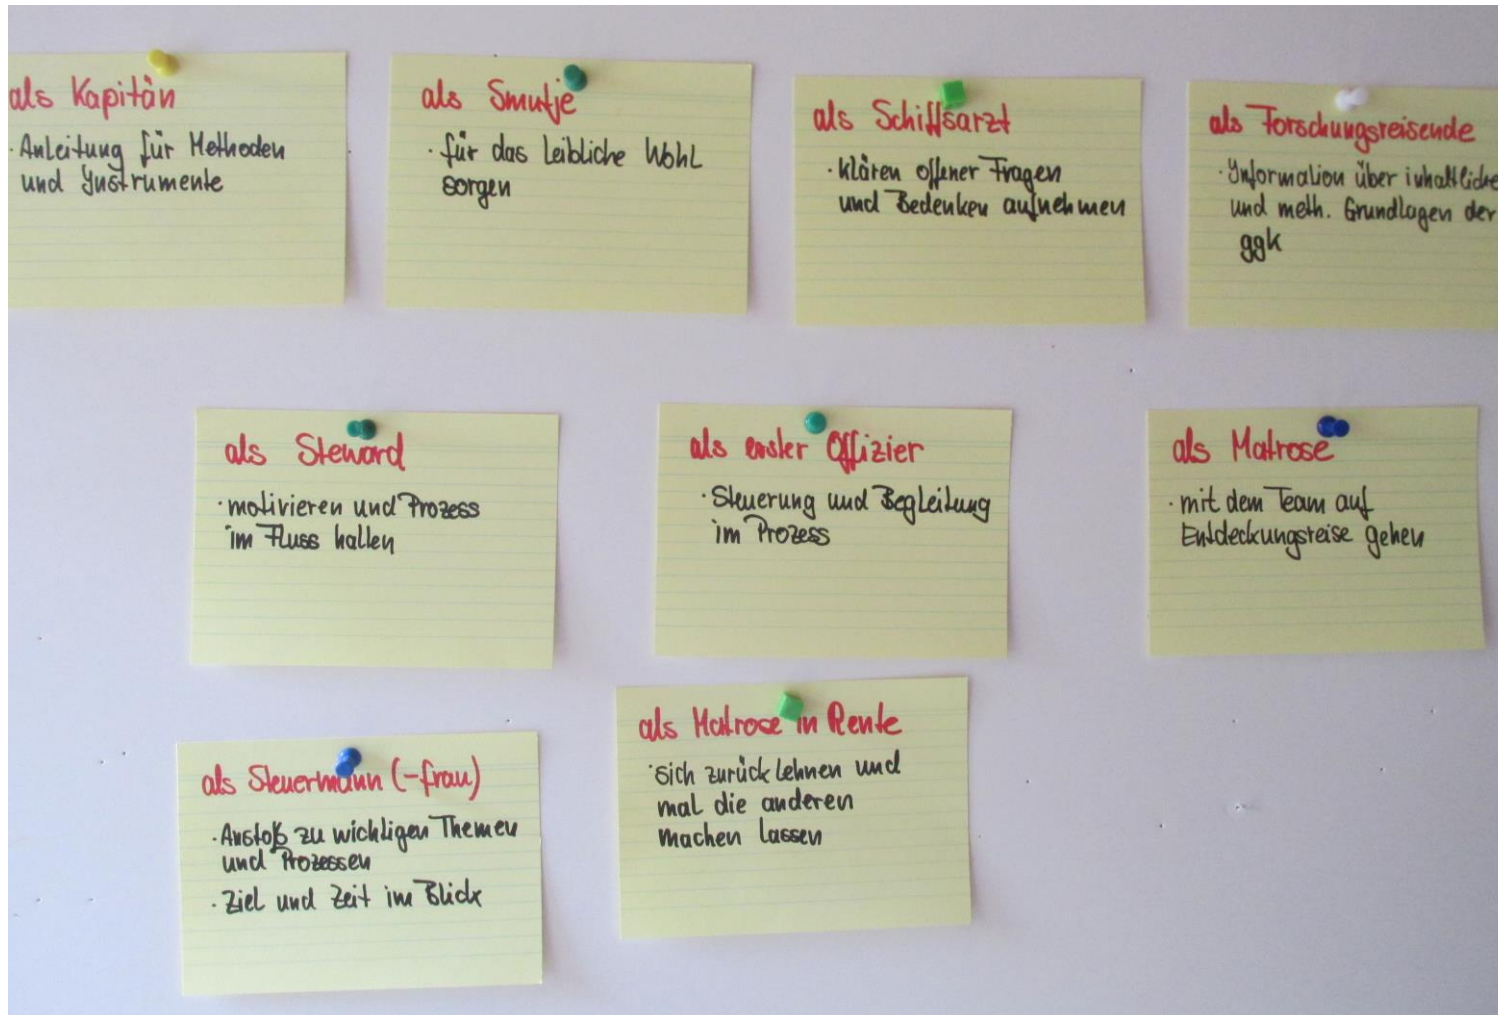 als Kapitän
· Anleitung für Methoden
und Instrumente
als Smutje
· für das leibliche Wohl
sorgen
als Schiffsarzt
· klären offener Fragen
und Bedenken aufnehmen
als Forschungsreisende
· Information über inhaltliche
und meth. Grundlagen der
ggk
als Steward
· motivieren und Prozess
im Fluss halten
als erster Offizier
· Steuerung und Begleitung
im Prozess
als Matrose
· mit dem Team auf
Entdeckungsreise gehen
als Steuermann (-frau)
· Anstoß zu wichtigen Themen
und Prozessen
· Ziel und Zeit im Blick
als Matrose in Rente
· sich zurück lehnen und
mal die anderen
machen lassen